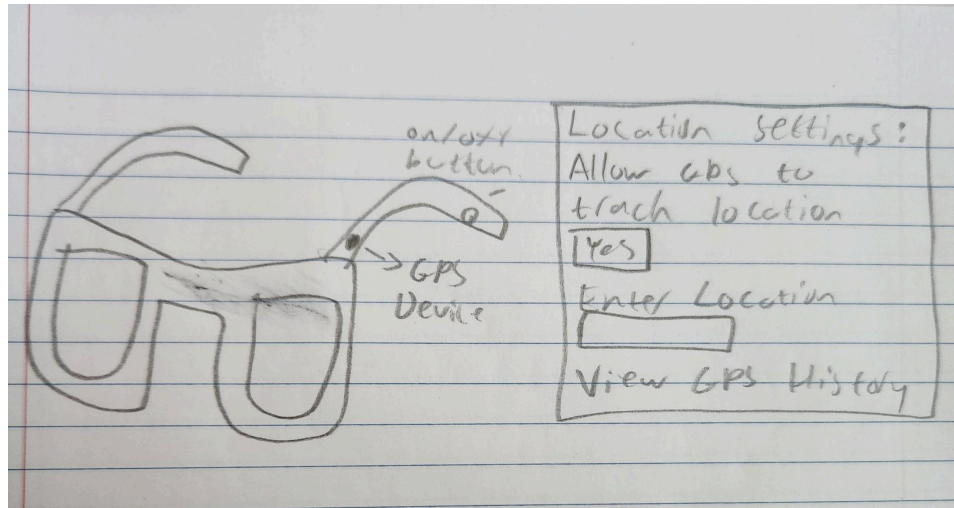 on/off
button
GPS
Device
Location settings:
Allow GPS to
track location
Yes
Enter Location
View GPS History